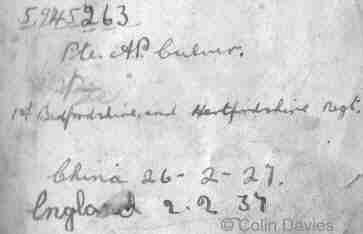 5,945263
Pte. A.P. Culver.
1st Bedfordshire and Hertfordshire Regt.
China 26-2-27.
England 2.2 37
© Colin Davies